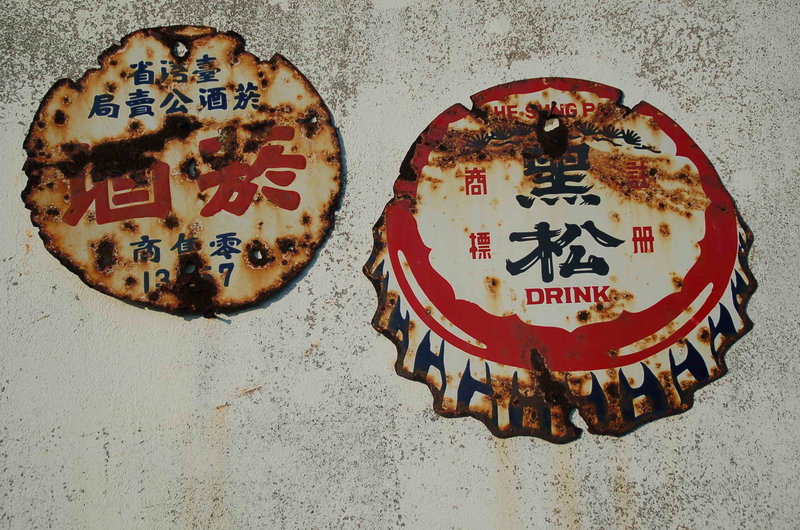 臺灣省
菸酒公賣局
菸酒
零售商
HE-SUNG P
黑松
註冊
商標
DRINK